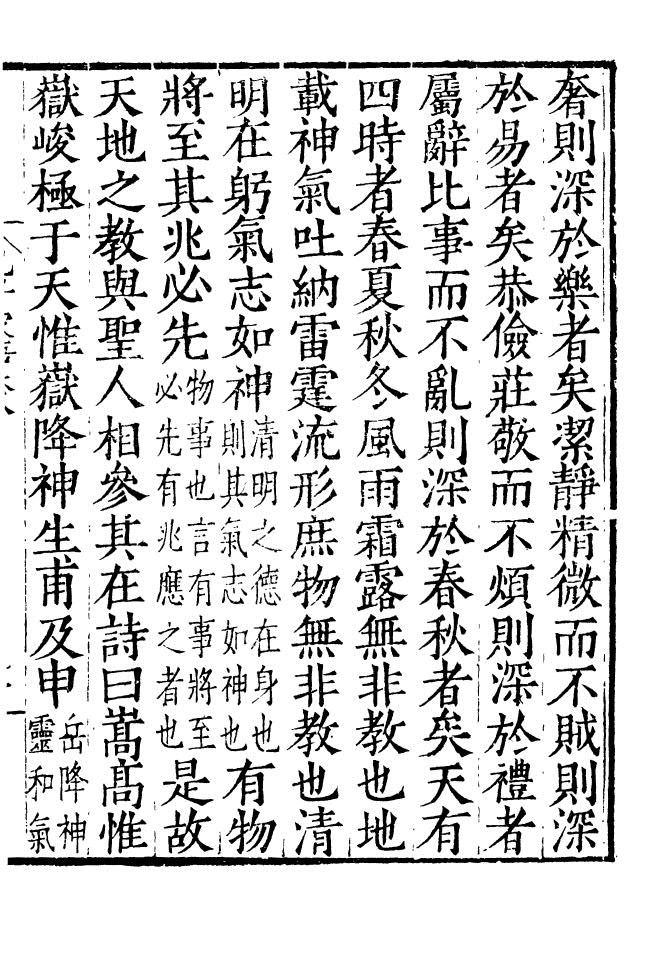 奢則深於樂者矣潔靜精微而不賊則深
於易者矣恭儉莊敬而不煩則深於禮者
屬辭比事而不亂則深於春秋者矣天有
四時者春夏秋冬風雨霜露無非教也地
載神氣吐納雷霆流形庶物無非教也清
明在躬氣志如神清明之德在身也則其氣志如神也有物
將至其兆必先物事也言有事將至必先有兆應之者也是故
天地之教與聖人相參其在詩曰嵩高惟
嶽峻極于天惟嶽降神生甫及申岳降神靈和氣